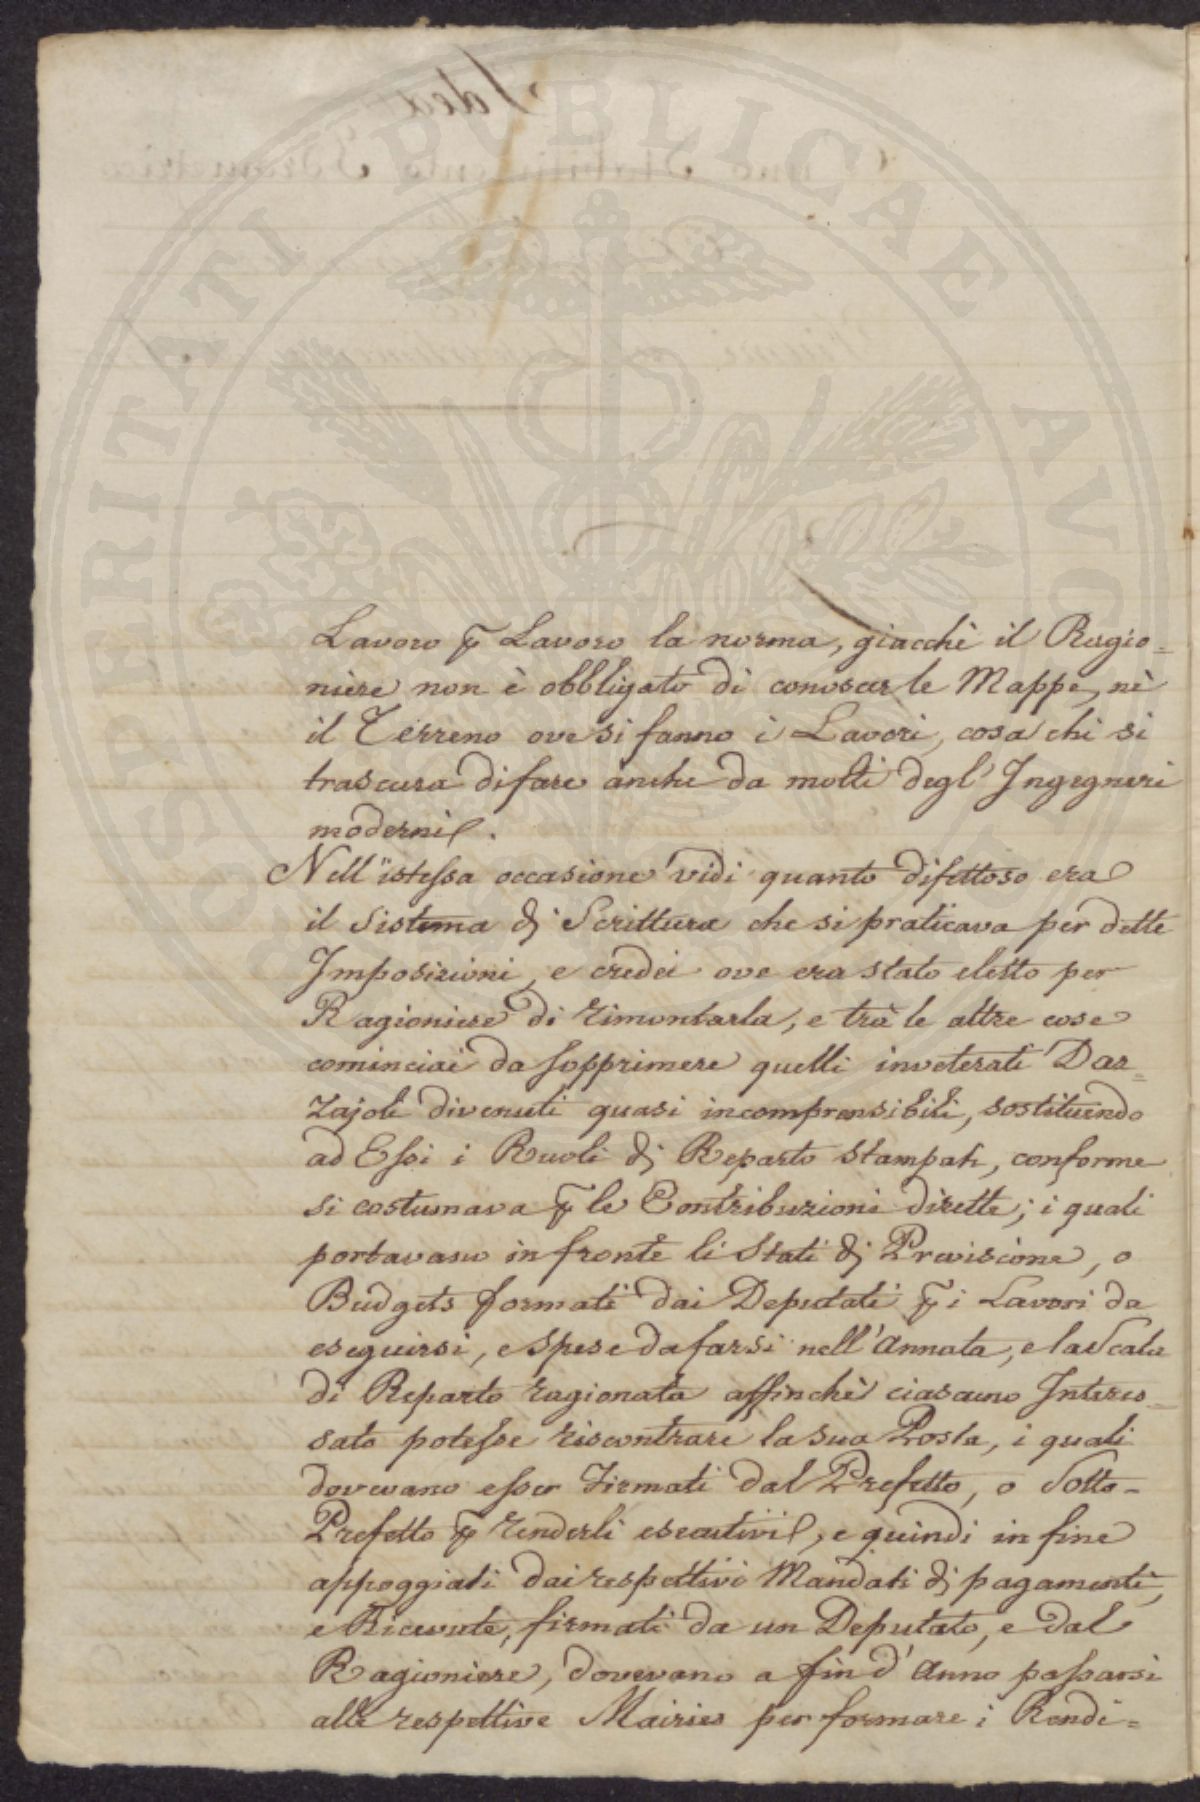 PROSPERITATI PUBLICAE AVGENDAE
Lavoro p Lavoro la norma, giacchè il Ragio=
niere non è obbligato di conoscer le Mappe, nè
il Terreno ove si fanno i Lavori, cosa che si
trascura di fare anche da molti degl' Ingegneri
moderni.
Nell' istessa occasione vidi quanto difettoso era
il Sistema di Scrittura che si praticava per dette
Imposizioni, e credei ove era stato eletto per
Ragioniere di rimontarla, e trà le altre cose
cominciai da sopprimere quelli inveterati Dar=
zajoli divenuti quasi incomprensibili, sostituendo
ad Essi i Ruoli di Reparto stampati, conforme
si costumava p le Contribuzioni dirette; i quali
portavano in fronte li Stati di Previsione, o
Budgets formati dai Deputati p i Lavori da
eseguirsi, e Spese da farsi nell' Annata, e la Scala
di Reparto ragionata affinchè ciascuno Interes=
sato potesse riscontrare la sua Posta, i quali
dovevano esser firmati dal Prefetto, o Sotto-
Prefetto p renderli esecutivi, e quindi in fine
appoggiati dai respettivi Mandati di pagamenti,
e Ricevute, firmati da un Deputato, e dal
Ragioniere, dovevano a fin d' Anno passarsi
alle respettive Mairies per formare i Rendi=